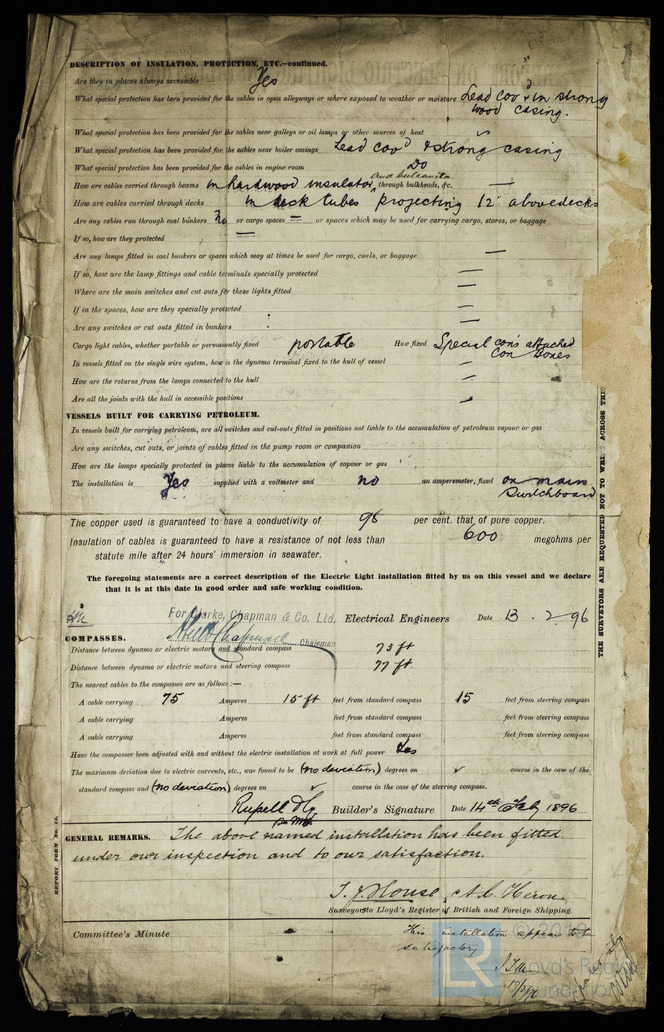 DESCRIPTION OF INSULATION, PROTECTION, ETC.—continued.
Are they in places always accessible Yes
What special protection has been provided for the cables in open alleyways or where exposed to weather or moisture Lead cov'd in strong
wood casing.
What special protection has been provided for the cables near galleys or oil lamps or other sources of heat
What special protection has been provided for the cables near boiler casings Lead cov'd & strong casing
What special protection has been provided for the cables in engine room Do
How are cables carried through beams in hardwood insulator and vulcanite through bulkheads, &c. —
How are cables carried through decks in deck tubes projecting 12" above decks
Are any cables run through coal bunkers No or cargo spaces — or spaces which may be used for carrying cargo, stores, or baggage
If so, how are they protected —
Are any lamps fitted in coal bunkers or spaces which may at times be used for cargo, coals, or baggage —
If so, how are the lamp fittings and cable terminals specially protected —
Where are the main switches and cut outs for these lights fitted —
If in the spaces, how are they specially protected —
Are any switches or cut outs fitted in bunkers —
Cargo light cables, whether portable or permanently fixed portable How fixed Special con's attached
con boxes
In vessels fitted on the single wire system, how is the dynamo terminal fixed to the hull of vessel —
How are the returns from the lamps connected to the hull —
Are all the joints with the hull in accessible positions —
VESSELS BUILT FOR CARRYING PETROLEUM.
In vessels built for carrying petroleum, are all switches and cut-outs fitted in positions not liable to the accumulation of petroleum vapour or gas
Are any switches, cut outs, or joints of cables fitted in the pump room or companion
How are the lamps specially protected in places liable to the accumulation of vapour or gas
The installation is Yes supplied with a voltmeter and no an amperemeter, fixed on main
Switchboard
The copper used is guaranteed to have a conductivity of 98 per cent. that of pure copper.
Insulation of cables is guaranteed to have a resistance of not less than 600 megohms per
statute mile after 24 hours' immersion in seawater.
The foregoing statements are a correct description of the Electric Light installation fitted by us on this vessel and we declare
that it is at this date in good order and safe working condition.
For Clarke, Chapman & Co. Ltd. Electrical Engineers Date 13.2.96
Chapman Chairman
COMPASSES.
Distance between dynamo or electric motors and standard compass 73 ft
Distance between dynamo or electric motors and steering compass 77 ft
The nearest cables to the compasses are as follows:—
A cable carrying 75 Amperes 15 ft feet from standard compass 15 feet from steering compass
A cable carrying Amperes feet from standard compass feet from steering compass
A cable carrying Amperes feet from standard compass feet from steering compass
Have the compasses been adjusted with and without the electric installation at work at full power Yes
The maximum deviation due to electric currents, etc., was found to be (no deviation) degrees on course in the case of the
standard compass and (no deviation) degrees on course in the case of the steering compass.
Builder's Signature Date 14th Feby 1896
GENERAL REMARKS. The above named installation has been fitted
under our inspection and to our satisfaction.
T. J. House, A. C. Heron
Surveyors to Lloyd's Register of British and Foreign Shipping.
Committee's Minute
This installation appears to be
satisfactory
REPORT FORM
THE SURVEYORS ARE REQUESTED NOT TO WRITE ACROSS THIS
LR
Lloyd's Register
Foundation